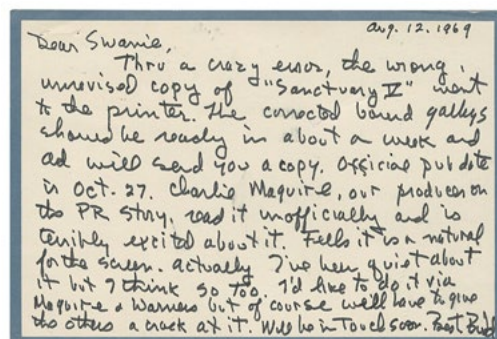 Aug. 12. 1969
Dear Swanie,
Thru a crazy error, the wrong,
unrevised copy of "Sanctuary V" went
to the printer. The corrected bound galleys
should be ready in about a week and
ad will send you a copy. Official pub date
is Oct. 27. Charlie Maguire, our producer on
the PR story, read it unofficially and is
terribly excited about it. Feels it is a natural
for the screen. Actually I've been quiet about
it but I think so too. I'd like to do it via
Maguire & Warners but of course we'll have to give
the others a crack at it. Will be in touch soon. Best Budd